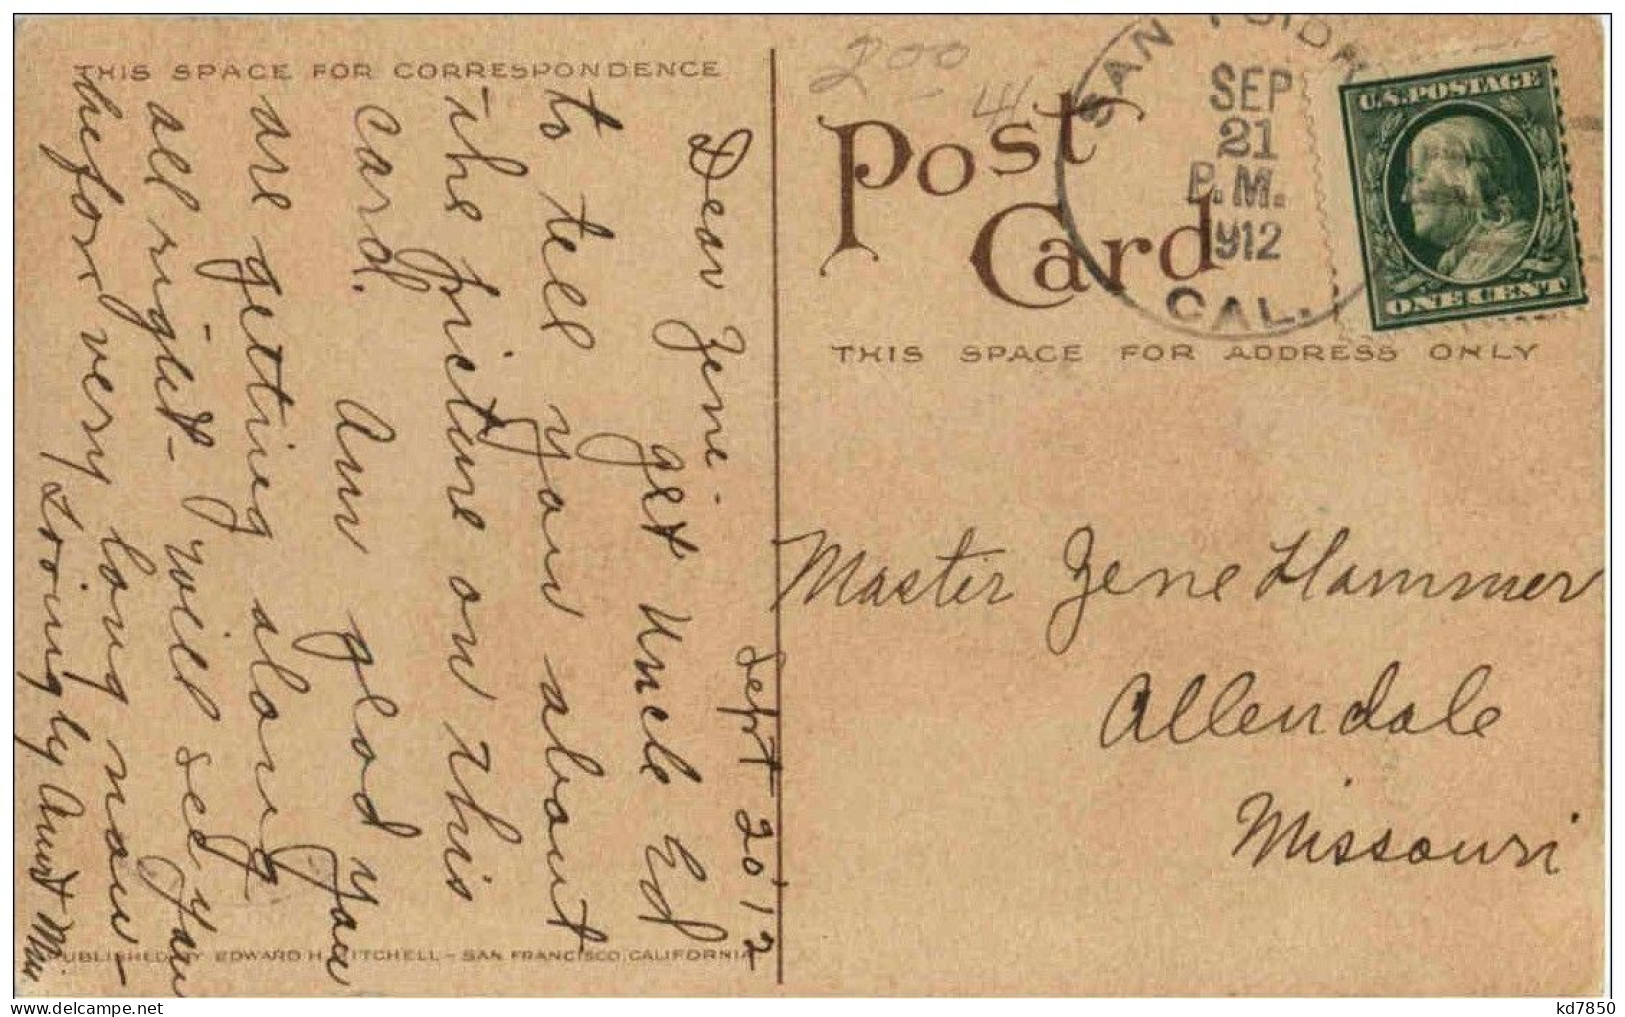 THIS SPACE FOR CORRESPONDENCE
Sept 20 '12
Dear Zene
get Uncle Ed
to tell you about
the picture on this
card.
Am glad you
are getting along
all right - will see you
before very long now -
Lovingly Aunt Min
PUBLISHED BY EDWARD H. MITCHELL - SAN FRANCISCO, CALIFORNIA
200
Post
Card
SAN YSIDRO
SEP
21
P.M.
1912
CAL.
U.S. POSTAGE
ONE CENT
THIS SPACE FOR ADDRESS ONLY
Master Zene Hammer
Allendale
Missouri
kd7850